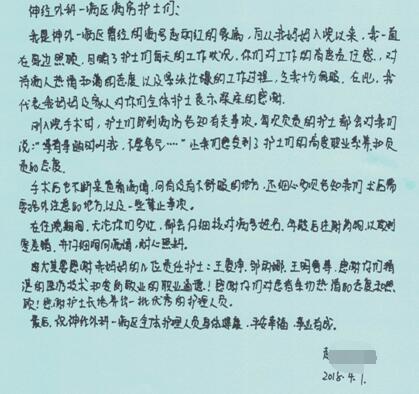 神经外科一病区病房护士们：
我是神外一病区曾经的病号赵的红的家属，自从我妈妈入院以来，我一直
在身边照顾，目睹了护士们每天的工作状况，你们对工作的高度责任感，对
病人热情和蔼的态度以及紧张忙碌的工作过程，令我十分佩服。在此，我
代表我妈妈及家人对你们全体护士表示深深的感谢。
刚入院手术时，护士们即到病房告知有关事项，每次负责的护士都会对我们
说："有事随时叫我，不要客气……"让我们感受到了护士们的高度职业素养和负
责的态度。
手术后也不断来查看病情，问有没有不舒服的地方，还细心多次告知我们术后需
要格外注意的地方以及一些禁止事项。
在住院期间，无论你们多忙，都会仔细核对病号姓名、年龄后注射为例，以取到
零差错，并仔细询问病情，耐心照料。
因为其要感谢我妈妈的几位责任护士：王 邹 王明 感谢你们精
湛的医疗技术和爱岗敬业的职业道德！感谢你们对患者亲切热情的态度和照
顾！感谢护士长培养统一批优秀的护理人员。
最后，祝神经外科一病区全体护理人员身体健康，平安幸福，事业有成。
赵
2018.4.1.